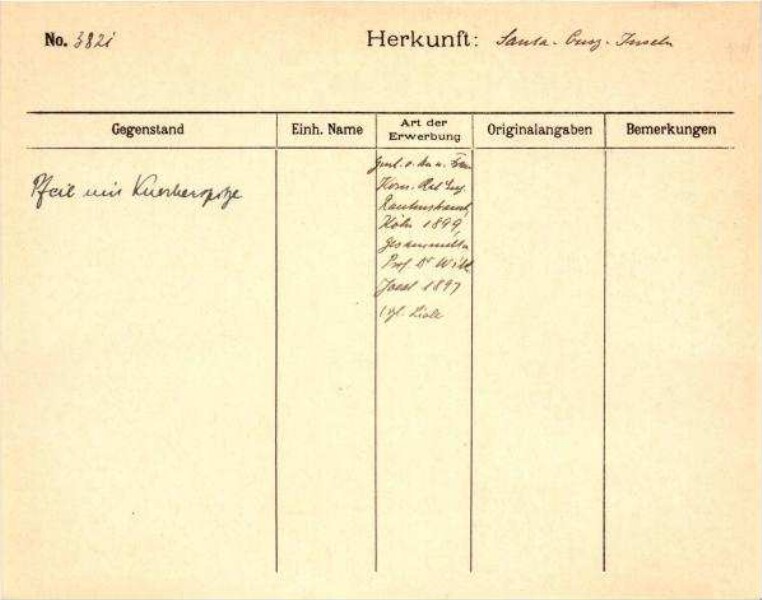 No. 382i
Herkunft: Santa-Cruz-Inseln
Gegenstand
Einh. Name
Art der Erwerbung
Originalangaben
Bemerkungen
Pfeil mit Knochenspitze
Frau
Kom. Rat Eug.
Rautenstrauch,
Köln 1899,
gesammelt v.
Prof. Dr Wilh.
Joest 1897